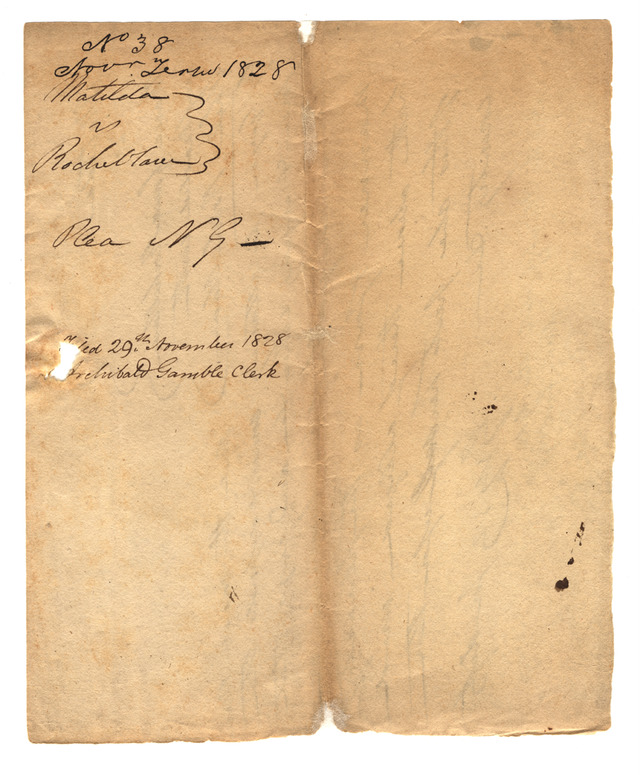 No 38
Novr. Term 1828
Matilda
vs
Rocheblave
Plea N G —
Filed 29th November 1828
Archibald Gamble Clerk